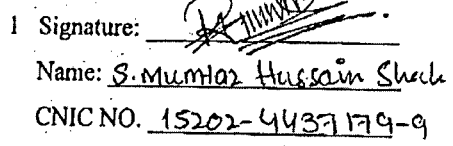 1 Signature:
Name: S. Mumtaz Hussain Shah
CNIC NO. 15202-4437179-9